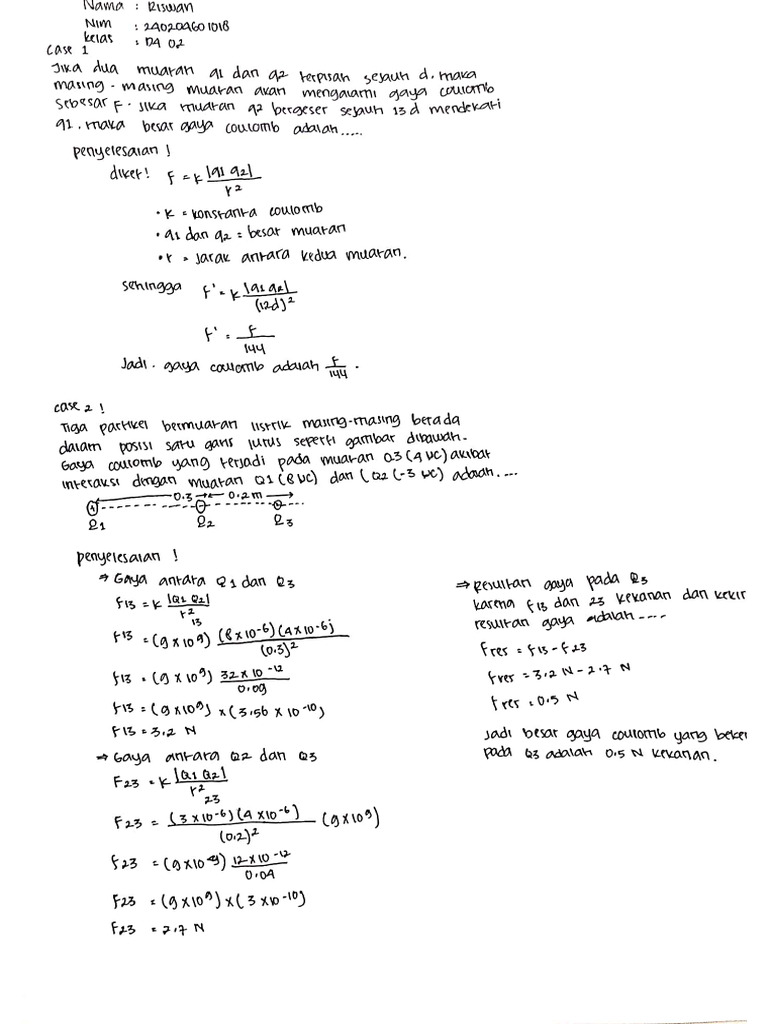 Nama : Riswan
Nim : 240204601018
kelas : PA 02
Case 1
Jika dua muatan q1 dan q2 terpisah sejauh d. maka
masing-masing muatan akan mengalami gaya coulomb
sebesar F. Jika muatan q2 bergeser sejauh 13 d mendekati
q1. maka besar gaya coulomb adalah.....
penyelesaian !
diket! F = k |q1 q2| / r²
• k = konstanta coulomb
• q1 dan q2 = besar muatan
• r = jarak antara kedua muatan.
sehingga F' = k |q1 q2| / (12d)²
F' = F / 144
Jadi. gaya coulomb adalah F/144.
case 2 !
Tiga partikel bermuatan listrik masing-masing berada
dalam posisi satu garis lurus seperti gambar dibawah.
Gaya coulomb yang terjadi pada muatan Q3 (4 μC) akibat
interaksi dengan muatan Q1 (8 μC) dan (Q2 (-3 μC) adalah....
0.3 0.2 m
+ - +
Q1 Q2 Q3
penyelesaian !
⇒ Gaya antara Q1 dan Q3
F13 = k |Q1 Q2| / r² 13
F13 = (9 x 10⁹) (8 x 10-⁶) (4 x 10-⁶) / (0.3)²
F13 = (9 x 10⁹) 32 x 10-¹² / 0.09
F13 = (9 x 10⁹) x (3.56 x 10-¹⁰)
F13 = 3.2 N
⇒ Gaya antara Q2 dan Q3
F23 = k |Q1 Q2| / r² 23
F23 = (3 x 10-⁶) (4 x 10-⁶) / (0.2)² (9 x 10⁹)
F23 = (9 x 10⁹) 12 x 10-¹² / 0.04
F23 = (9 x 10⁹) x (3 x 10-¹⁰)
F23 = 2.7 N
⇒ Resultan gaya pada Q3
karena F13 dan 23 kekanan dan kekir
resultan gaya adalah ....
Fres = F13 - F23
Fres = 3.2 N - 2.7 N
Fres = 0.5 N
Jadi besar gaya coulomb yang beker
pada Q3 adalah 0.5 N kekanan.